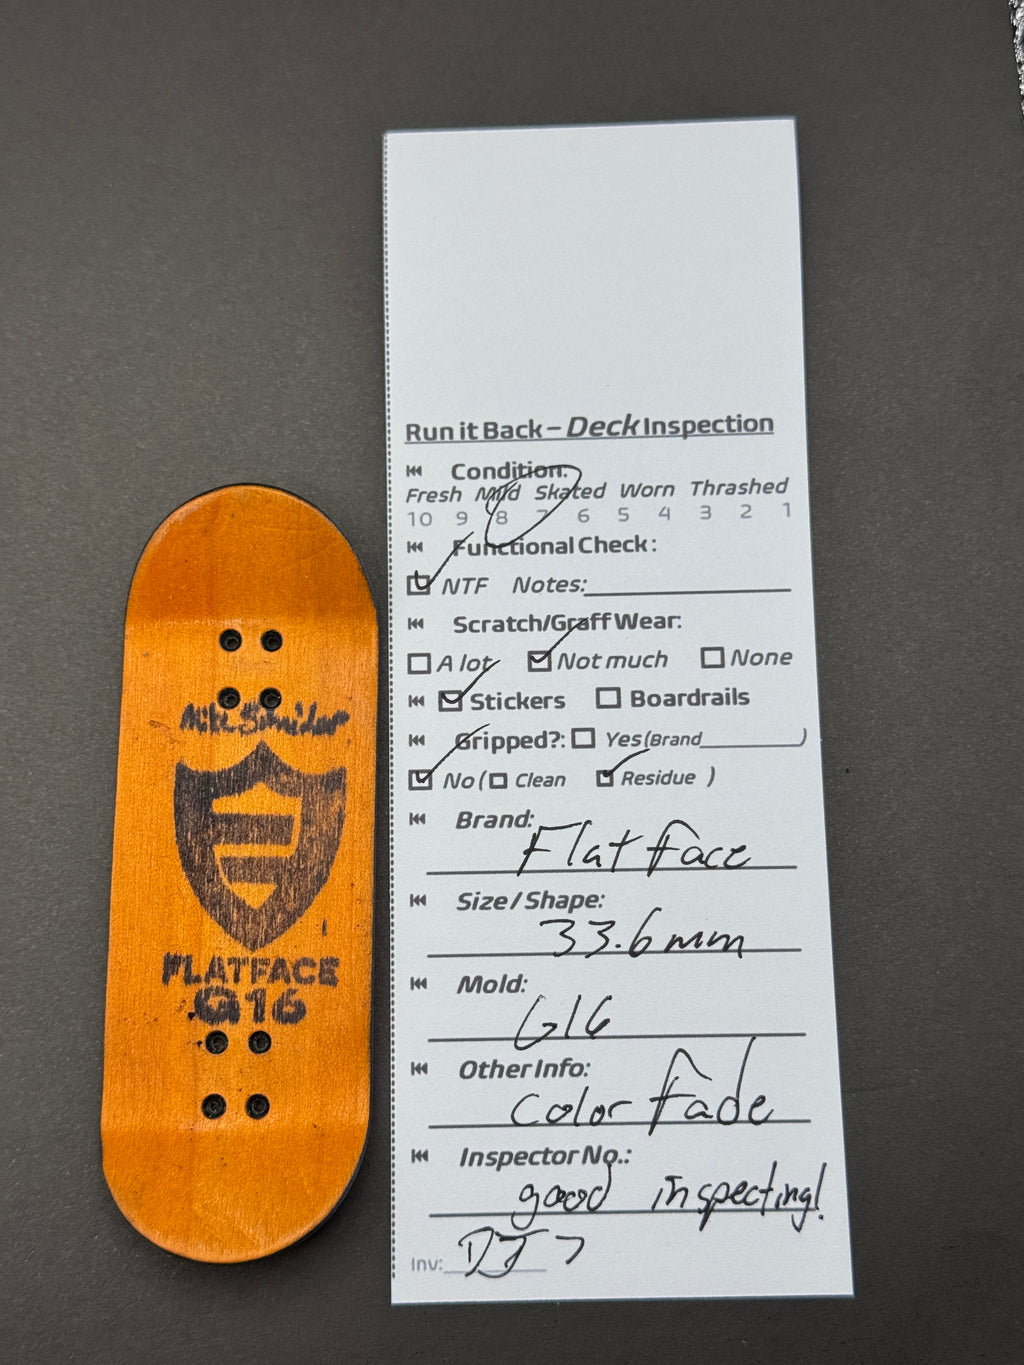 FLATFACE
G16
Run it Back – Deck Inspection
Condition:
Fresh Mild Skated Worn Thrashed
10 9 8 7 6 5 4 3 2 1
Functional Check:
NTF Notes:
Scratch/Graff Wear:
A lot Not much None
Stickers Boardrails
Gripped?: Yes (Brand )
No ( Clean Residue )
Brand:
Flatface
Size / Shape:
33.6mm
Mold:
G16
Other Info:
Color fade
Inspector No.:
good inspecting!
Inv: